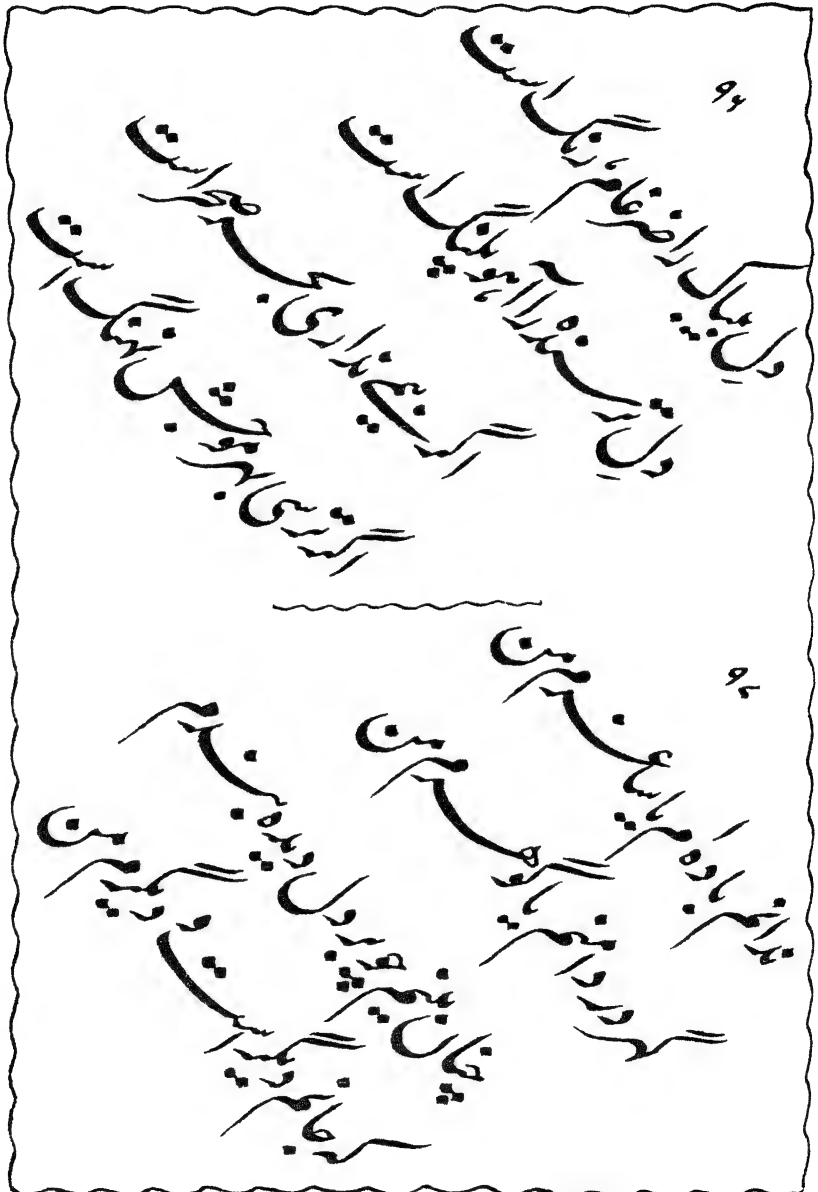 ۹۶
دلِ بیباک را ضرغام رنگ است
دلِ ترسنده را آهو پلنگ است
اگر بیمی نداری بحر صحراست
اگر ترسی بهر موجش نهنگ است
۹۷
ندانم باده ام یا ساغرم من
گهر در دامنم یا گوهرم من
چنان بینم چو بر دل دیده بندم
که جانم دیگر است و دیگرم من